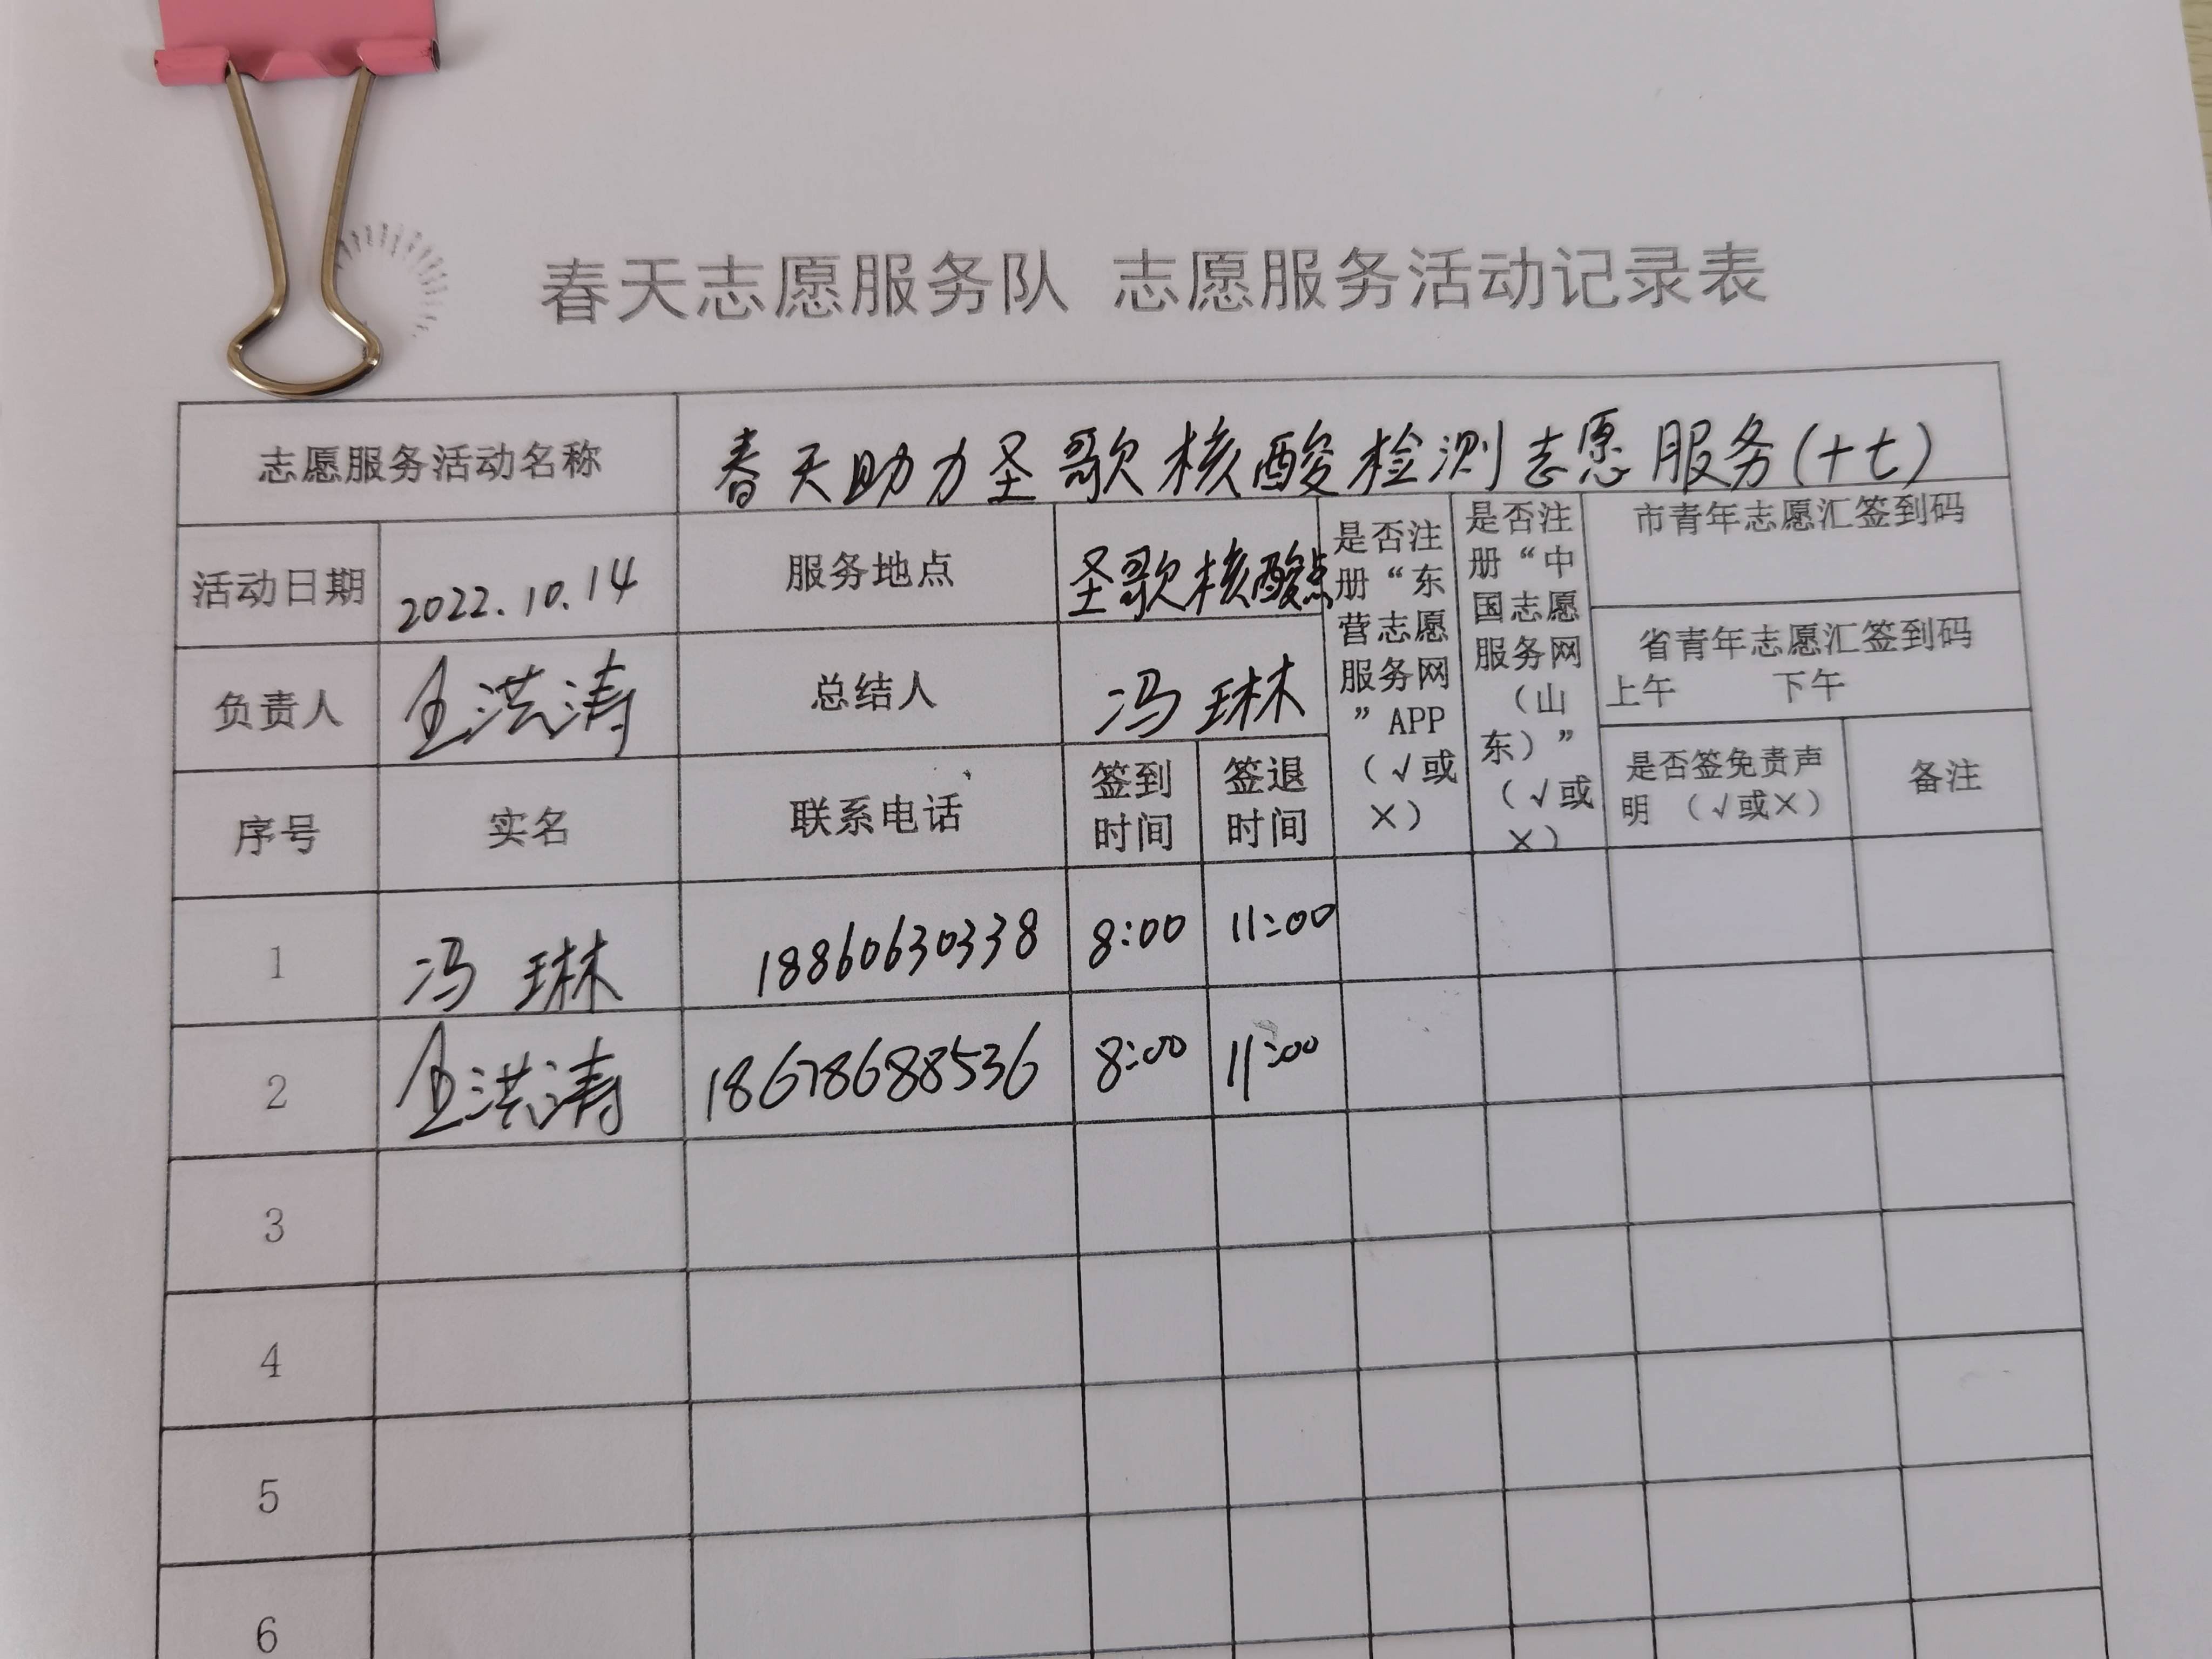 春天志愿服务队 志愿服务活动记录表
志愿服务活动名称 春天助力圣歌核酸检测志愿服务(十七)
活动日期 2022.10.14 服务地点 圣歌核酸点
是否注册“东营志愿服务网”APP(√或×)
是否注册“中国志愿服务网(山东)”(√或×)
市青年志愿汇签到码
省青年志愿汇签到码
上午 下午
负责人 王洪涛 总结人 冯琳
序号 实名 联系电话 签到时间 签退时间 是否签免责声明 (√或×) 备注
1 冯琳 18860630338 8:00 11:00
2 王洪涛 18678688536 8:00 11:00
3
4
5
6